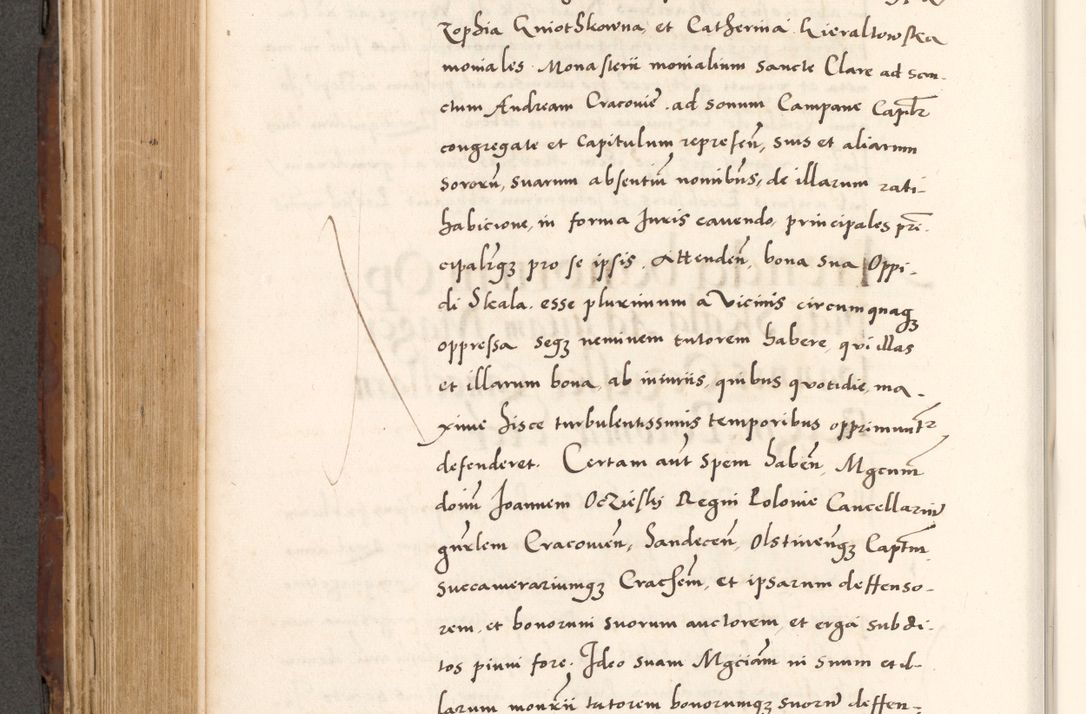 Zophia Gniothkowna, et Catherina Gieraltowska
moniales Monasterii monialium sancte Clare ad san-
ctum Andream Cracovie, ad sonum Campane Capłr
congregate et Capitulum represeñ, suis et aliarum
Sororũ, suarum absentiũ nominibus, de illarum rati-
habicione, in forma Juris cavendo, principales prĩ-
cipalẽqz pro se ipsis. Attendeñ, bona sua Oppi-
di Skala, esse plurimum a Vicinis circumquaqz
oppressa seqz neminem tutorem habere, qui illas
et illarum bona, ab iniuriis, quibus quotidie, ma-
xime hisce turbulentissimis temporibus opprimuntr
defenderet. Certam aũt spem habeñ, Mgcum
doñm Joannem Ocziesky Regni Polonie Cancellariũ
gñrlem Cracovieñ, Sandeceñ, Olstineñqz Captm
succamerariumqz Cracheñ, et ipsarum deffenso-
rem, et bonorum suorum auctorem, et erga subdi-
tos pium fore. Ideo suam Mgciam in suum et il-
larum monrii tutorem bonorumqz suorũ deffen-